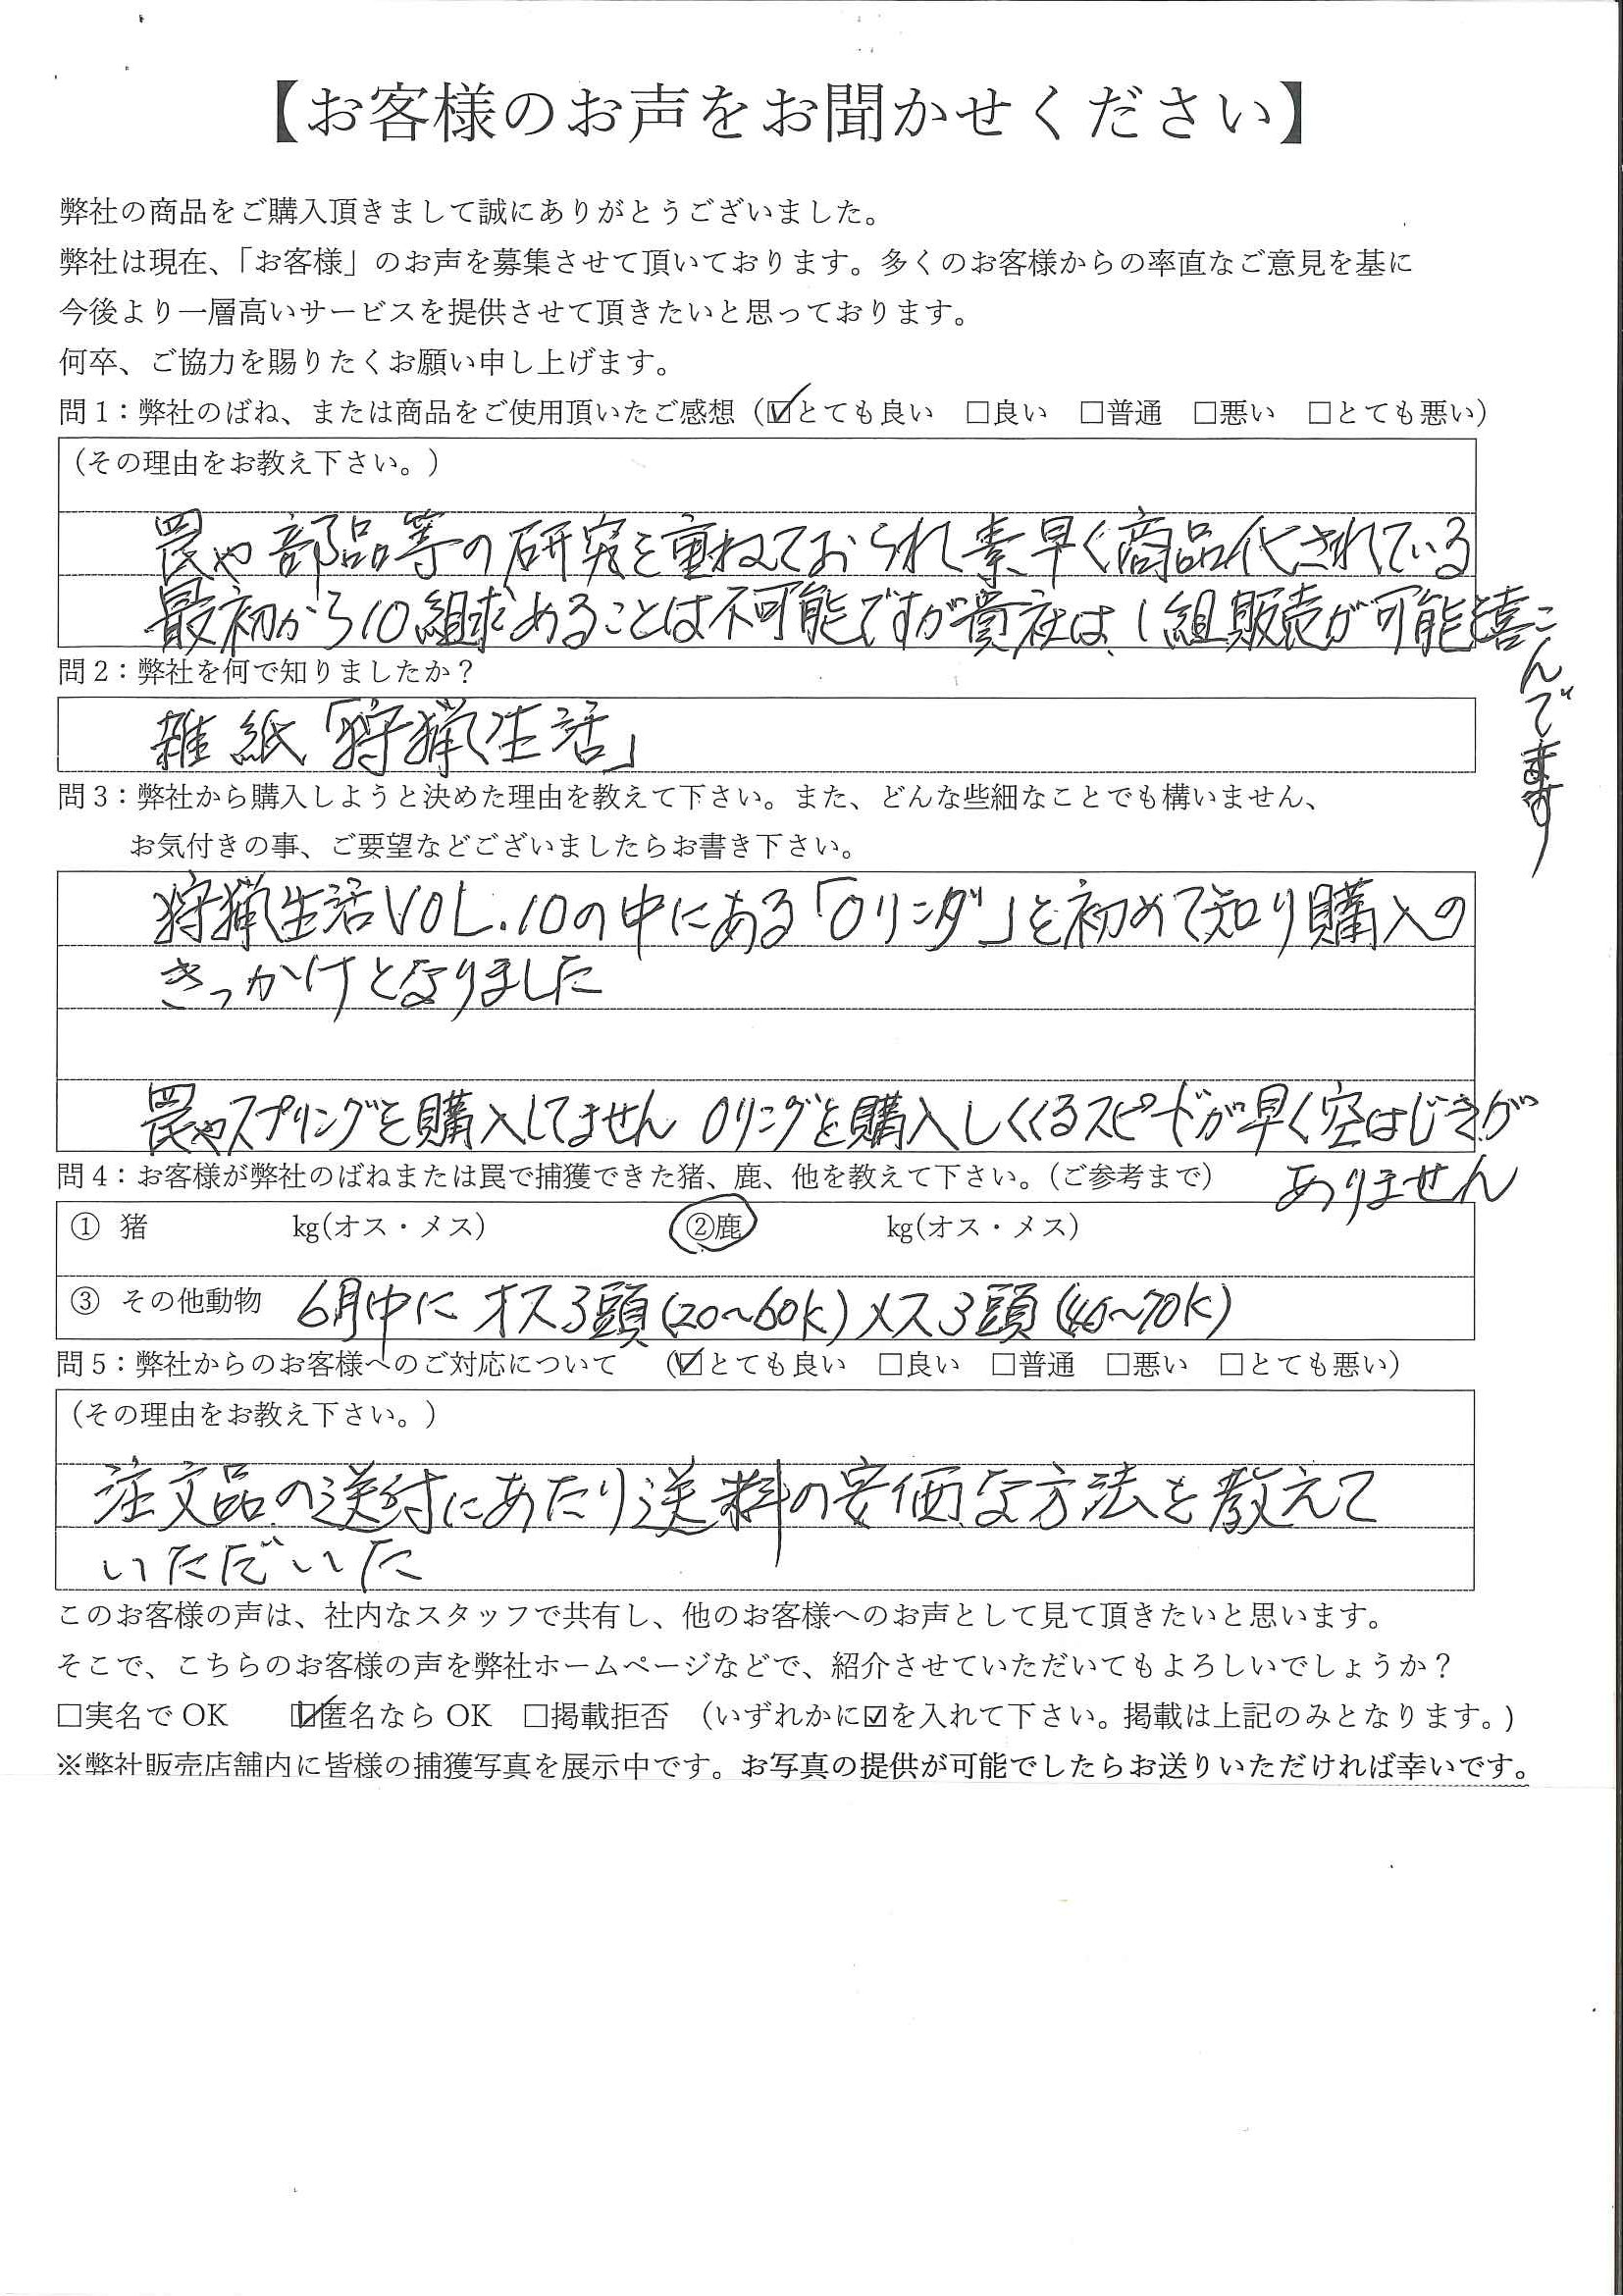 【お客様のお声をお聞かせください】
弊社の商品をご購入頂きまして誠にありがとうございました。
弊社は現在、「お客様」のお声を募集させて頂いております。多くのお客様からの率直なご意見を基に
今後より一層高いサービスを提供させて頂きたいと思っております。
何卒、ご協力を賜りたくお願い申し上げます。
問1：弊社のばね、または商品をご使用頂いたご感想（☑とても良い　□良い　□普通　□悪い　□とても悪い）
（その理由をお教え下さい。）
罠や部品等の研究を重ねておられ素早く商品化されている
最初から10組求めることは不可能ですが貴社は、1組販売が可能と喜こ
んでます
問2：弊社を何で知りましたか？
雑紙「狩猟生活」
問3：弊社から購入しようと決めた理由を教えて下さい。また、どんな些細なことでも構いません、
お気付きの事、ご要望などございましたらお書き下さい。
狩猟生活VOL.10の中にある「Oリング」を初めて知り購入の
きっかけとなりました
罠やスプリングを購入してません Oリングを購入しくくるスピードが早く空はじきが
ありません
問4：お客様が弊社のばねまたは罠で捕獲できた猪、鹿、他を教えて下さい。（ご参考まで）
① 猪　　kg(オス・メス)　　②鹿　　kg(オス・メス)
③ その他動物　6月中に オス3頭(20~60k) メス3頭(40~70k)
問5：弊社からのお客様へのご対応について　（☑とても良い　□良い　□普通　□悪い　□とても悪い）
（その理由をお教え下さい。）
注文品の送付にあたり送料の安価な方法を教えて
いただいた
このお客様の声は、社内なスタッフで共有し、他のお客様へのお声として見て頂きたいと思います。
そこで、こちらのお客様の声を弊社ホームページなどで、紹介させていただいてもよろしいでしょうか？
□実名でOK　☑匿名ならOK　□掲載拒否　（いずれかに☑を入れて下さい。掲載は上記のみとなります。)
※弊社販売店舗内に皆様の捕獲写真を展示中です。お写真の提供が可能でしたらお送りいただければ幸いです。